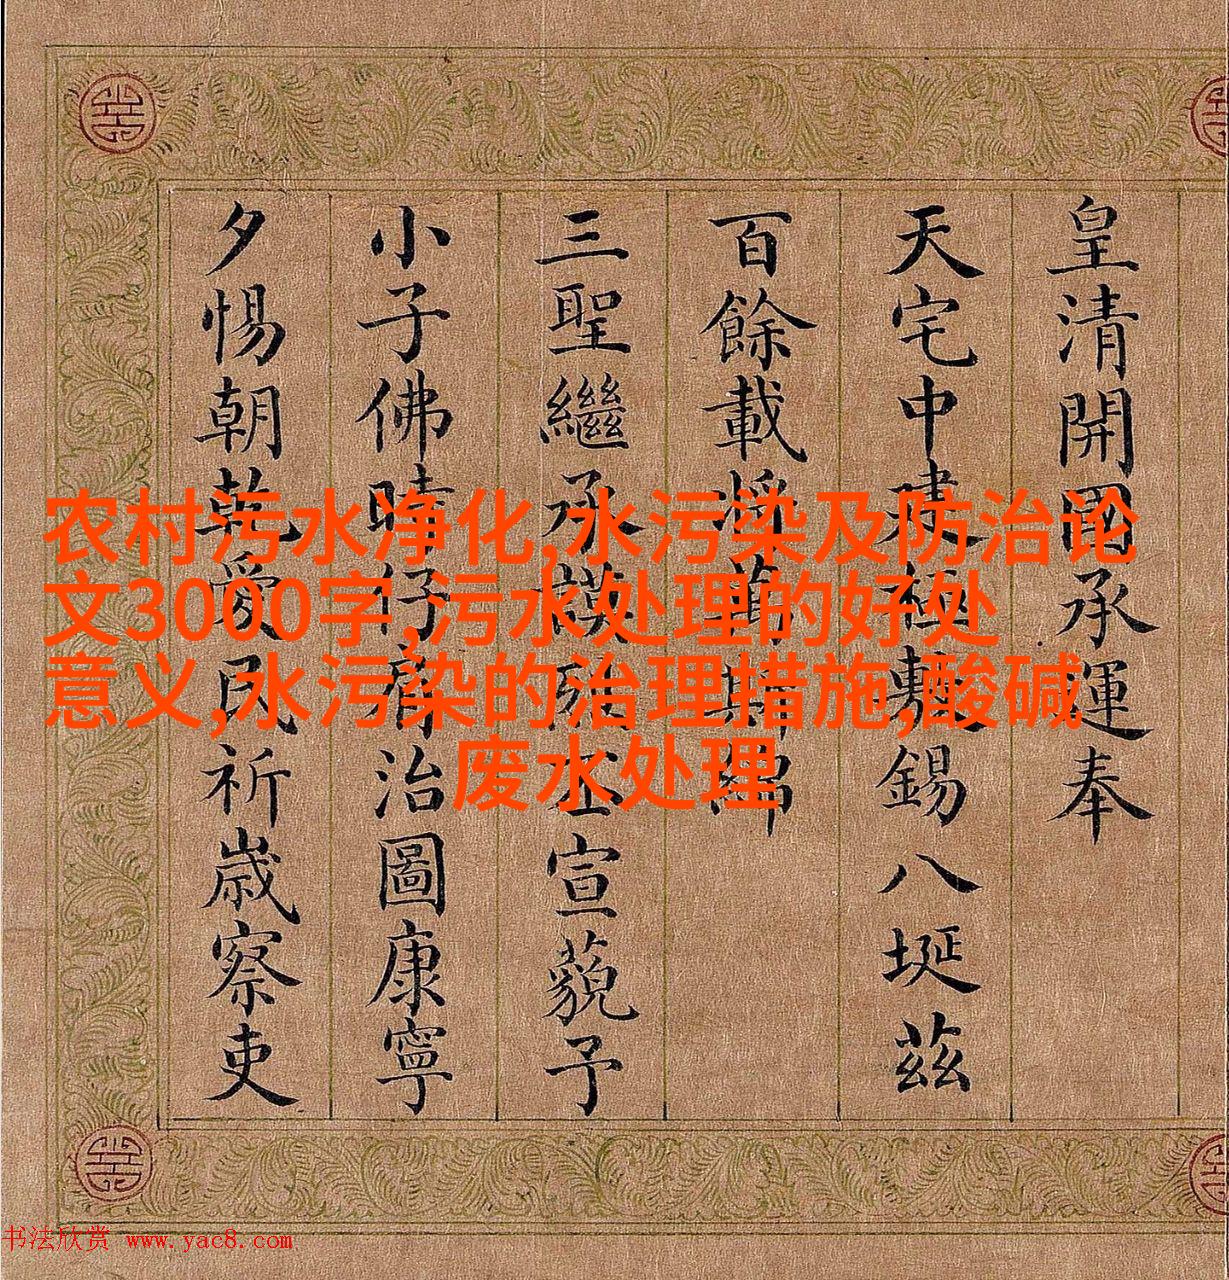 皇清開國承運奉
天宅中建極敷錫八埏茲
百餘載將萬斯綿
三聖繼承謨丕宣藐予
小子佛時仔肩治圖康寧
夕惕朝乾愛民祈歲察吏
农村污水净化,水污染及防治论
文3000字,污水处理的好处
意义,水污染的治理措施,酸碱
废水处理
书法欣赏 www.yac8.com